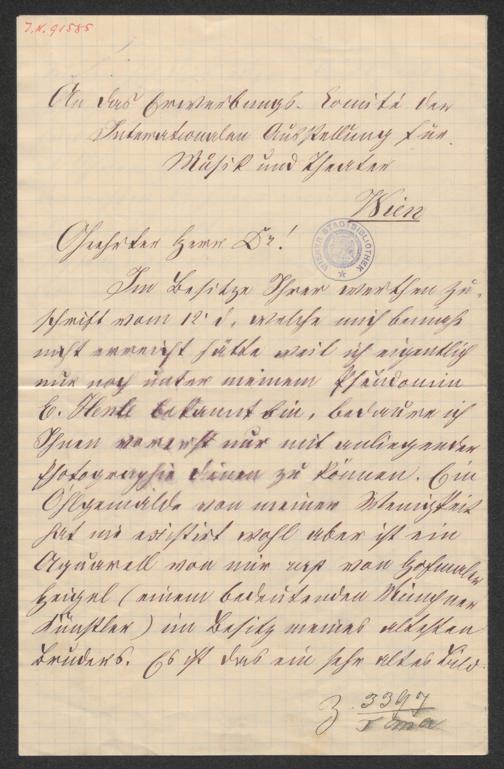 J.N. 91585
An das Erwerbungs-Comité der
Internationalen Ausstellung für
Musik und Theater
Wien
Geehrter Herr Dr!
WIENER STADTBIBLIOTHEK
Im Besitze Ihrer werthen Zu-
schrift vom 12 d, welche mich beinah
nicht erreicht hätte weil ich eigentlich
nur noch unter meinem Pseudonim
E. Henle bekannt bin, bedaure ich
Ihnen vorerst nur mit anliegender
Photographie dienen zu können. Ein
Ohlgemälde von meiner Wenigkeit
hat nie existirt wohl aber ist ein
Aquarell von mir von Hofmaler
Heigel (einem bedeutenden Münchner
Künstler) im Besitz meines ältesten
Bruders. Es ist das ein sehr altes Bild.
Z. 3397